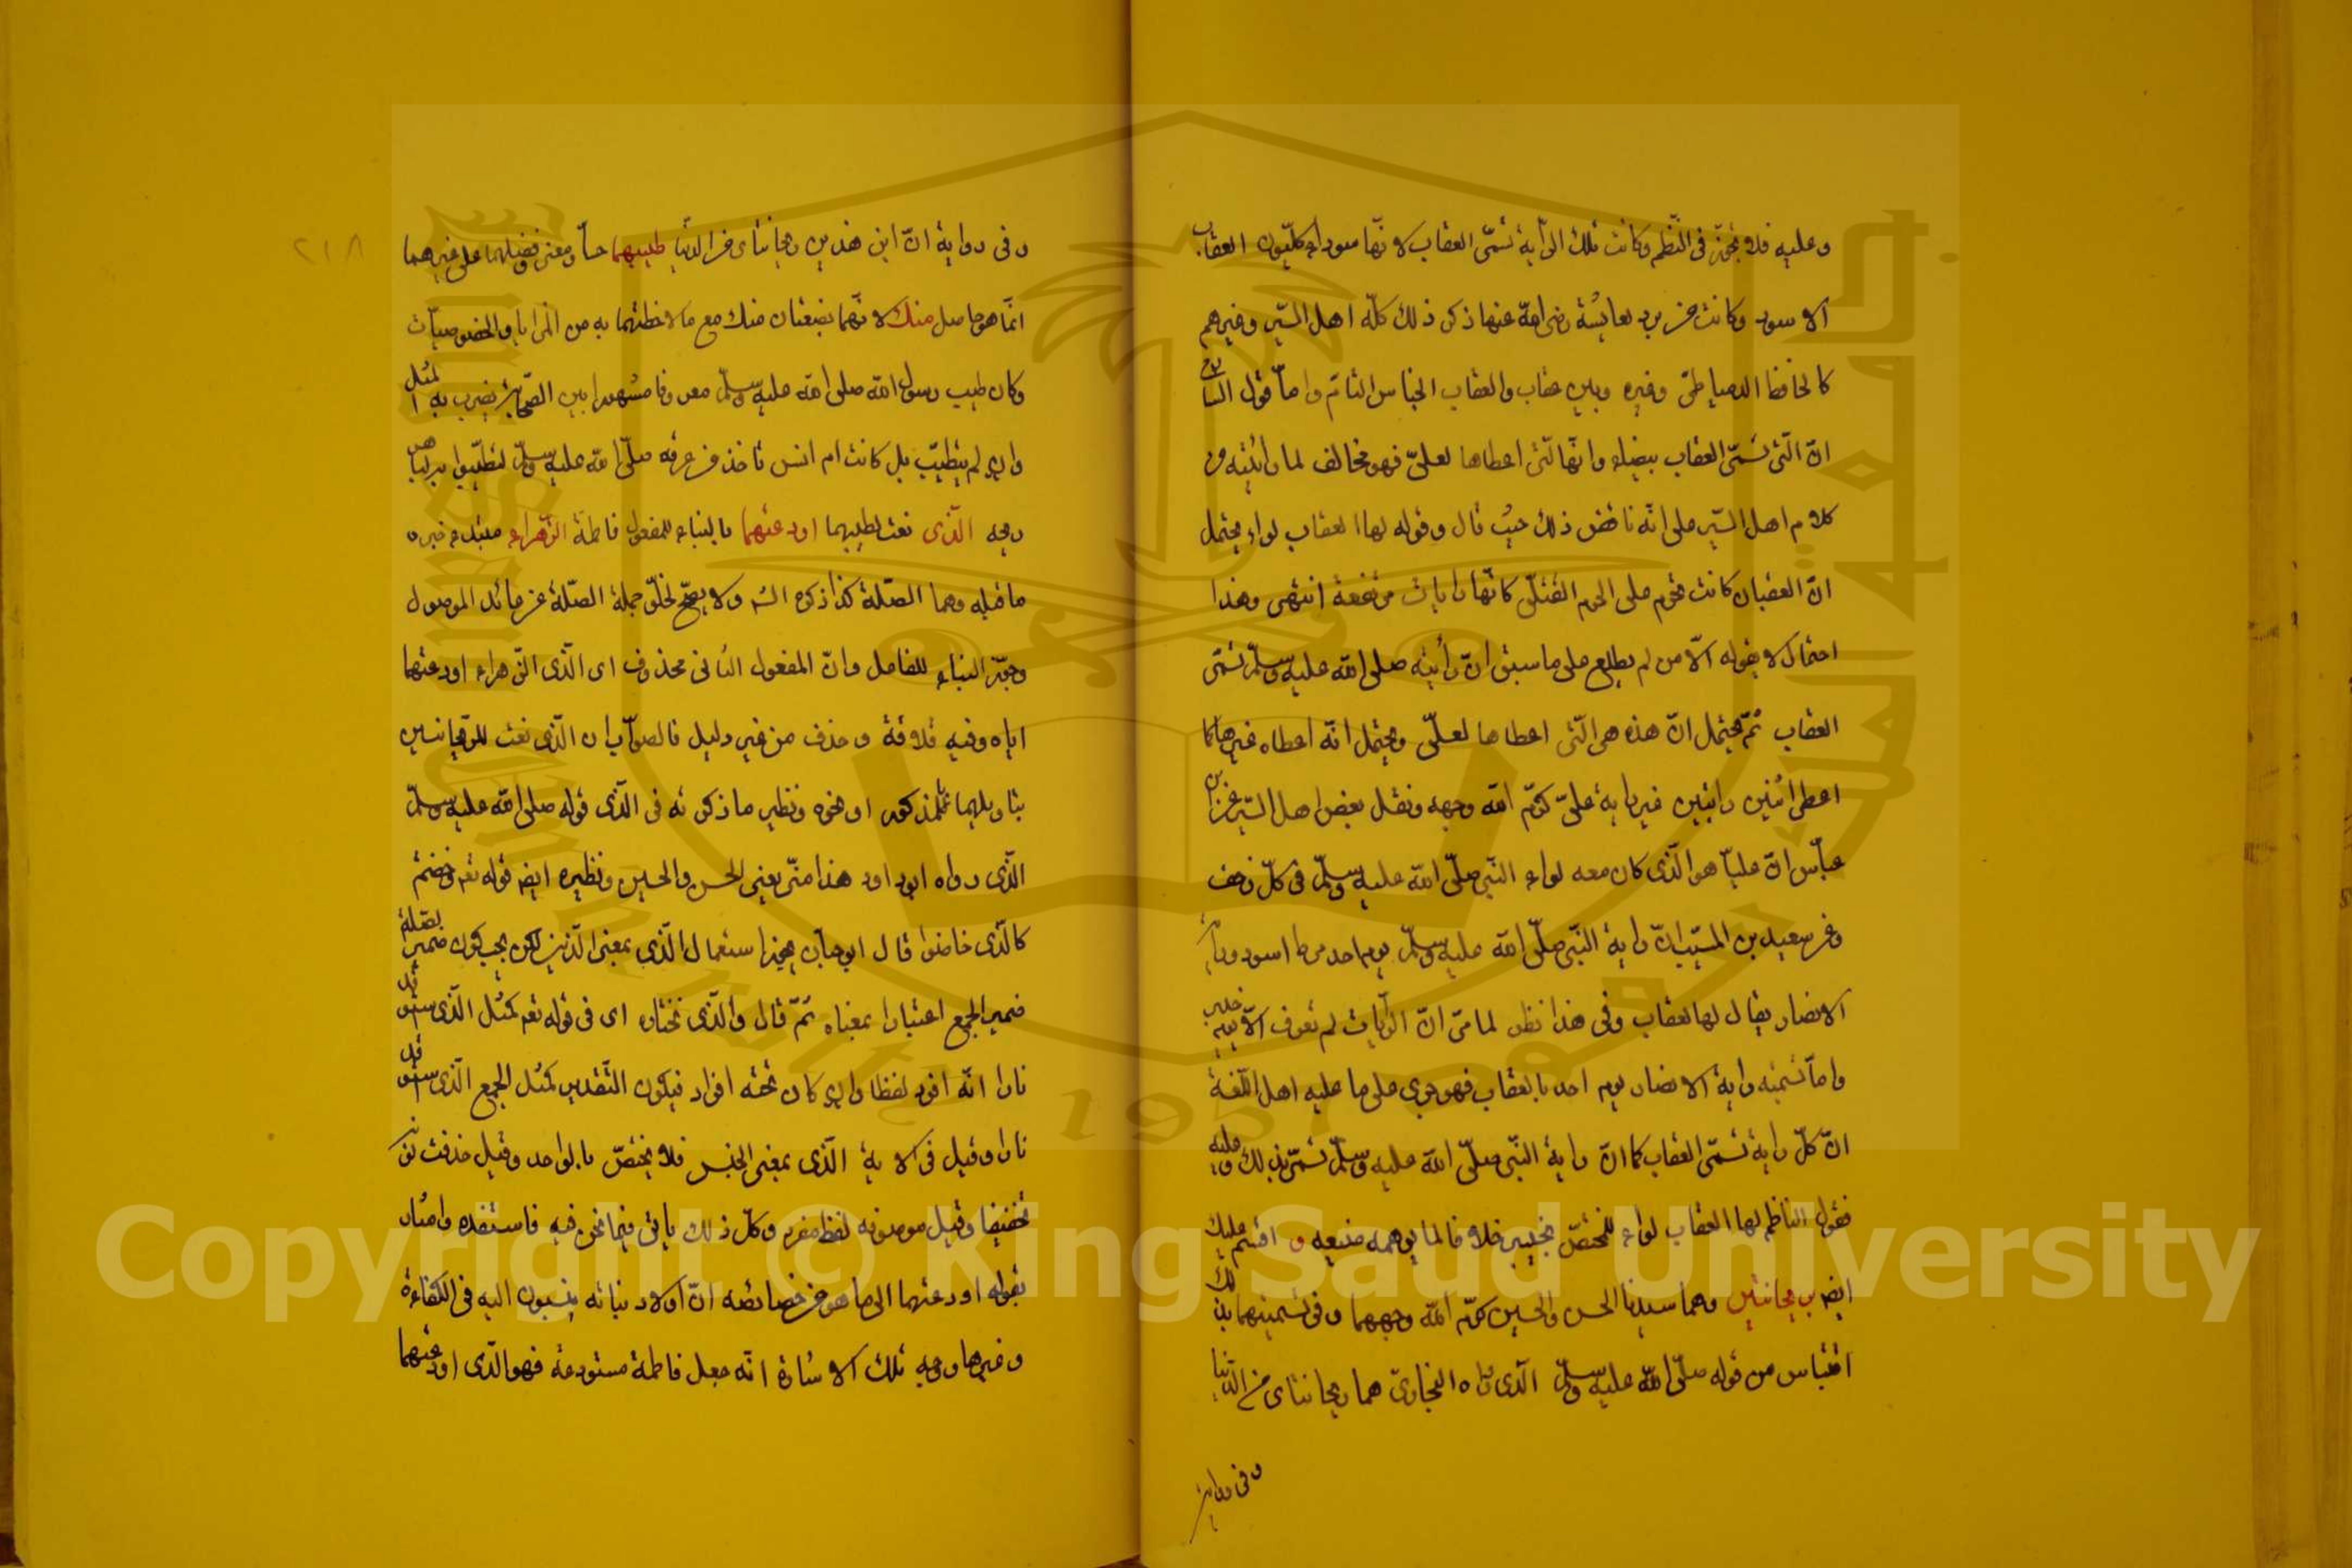 وعليه فلا تجوّز في النظم وكانت تلك الرّاية تسمّى العقاب لانّها سوداء كليون العقاب
الاسود وكانت من برد لعايشة رضي الله عنها ذكر ذلك كلّه اهل السّير وغيرهم
كالحافظ الدمياطيّ وغيره وبين عقاب والعقاب الجناس التام وامّا قول الشارح
انّ الّتي تسمّى العقاب بيضاء وانّها الّتي اعطاها لعليّ فهو مخالف لما رأيته من
كلام اهل السّير على انّه ناقض ذلك حيث قال وقوله لها العقاب لواء يحتمل
انّ العقبان كانت تحوم على الحوم القتلى كانّها رايات مرتفعة انتهى وهذا
احتمال لا يقوله الّا من لم يطلع على ما سبق انّ رأيته صلى الله عليه وسلّم تسمّى
العقاب ثمّ يحتمل انّ هذه هي الّتي اعطاها لعليّ ويحتمل انّه اعطاه غيرها كما
اعطى اثنين رايتين غير راية عليّ كرّم الله وجهه ونقل بعض اهل السّير عن ابن
عبّاس انّ عليّا هو الّذي كان معه لواء النّبي صلّى الله عليه وسلّم في كلّ زحف
وعن سعيد بن المسيّب انّ راية النّبي صلّى الله عليه وسلّم يوم احد مرط اسود وراية
الانصار يقال لها العقاب وفي هذا نظر لما مرّ انّ الرّايات لم تعرف الّا يوم خيبر
وامّا تسمية راية الانصار يوم احد بالعقاب فهو جري على ما عليه اهل اللّغة
انّ كلّ راية تسمّى العقاب كما انّ راية النّبي صلّى الله عليه وسلّم تسمّى بذلك وعليه
فقول الناظم لها العقاب لواء للمختصّ بخيبر خلافا لما يوهمه صنيعه و اقسم عليك
ايضا بريحانتين وهما سيدنا الحسن والحسين كرّم الله وجههما وفي تسميتهما بذلك
اقتباس من قوله صلّى الله عليه وسلّم الّذي رواه البخاريّ هما ريحانتاي من الدّنيا
وفي رواية
٢١٨
وفي رواية انّ ابني هذين ريحانتاي من الدّنيا طيبهما حسّا ومعنى وفضلهما على غيرهما
انّما هو حاصل منك لانّهما بضعتان منك مع ما لاحظتهما به من المزايا والخصوصيّات
وكان طيب رسول الله صلى الله عليه وسلّم معروفا مشهورا بين الصّحابة يضرب به المثل
وان لم يتطيّب بل كانت ام انس تأخذ من عرقه صلّى الله عليه وسلّم لتطيّبوا به
ريحه الّذي نعت لطيبهما اودعتهما بالبناء للمفعول فاطمة الزّهراء مبتدء خبره
ما قبله وهما الصّلة كذا ذكره الش ولا يصحّ لخلوّ جملة الصّلة عن عائد الموصول
وجوّز البناء للفاعل وانّ المفعول الثاني محذوف اى الّذي الزّهراء اودعتهما
اياه وفيه قلاقة وحذف من غير دليل فالصواب ان الّذي نعت للريحانتين
بتأويلهما بالمذكور او نحوه ونظير ما ذكرته في الّذي قوله صلى الله عليه وسلّم
الّذي رواه ابو داود هذا منّي يعني الحسن والحسين ونظيره ايضا قوله تعه وخضتم
كالّذي خاضوا قال ابو حيّان يجوز استعمال الّذي بمعنى الّذين لكن يجب كون ضمير بصلة
ضمير الجمع اعتبارا بمعناه ثمّ قال والّذي نختاره اى في قوله تعه كمثل الّذي استوقد
نارا انّه افرد لفظا وان كان تحته افراد فيكون التّقدير كمثل الجمع الّذي استوقد
نارا وقيل في الاية الّذي بمعنى الجنس فلا يختصّ بالواحد وقيل حذفت نونه
تخفيفا وقيل موصوفه لفظ مفرد وكلّ ذلك يأتي فيما نحن فيه فاستفده واشار
بقوله اودعتهما الى ما هو من خصائصه انّ اولاد بناته ينسبون اليه في الكفاءة
وغيرها ووجه تلك الاشارة انّه جعل فاطمة مستودعة فهو الّذي اودعتهما
Copyright © King Saud University
1957